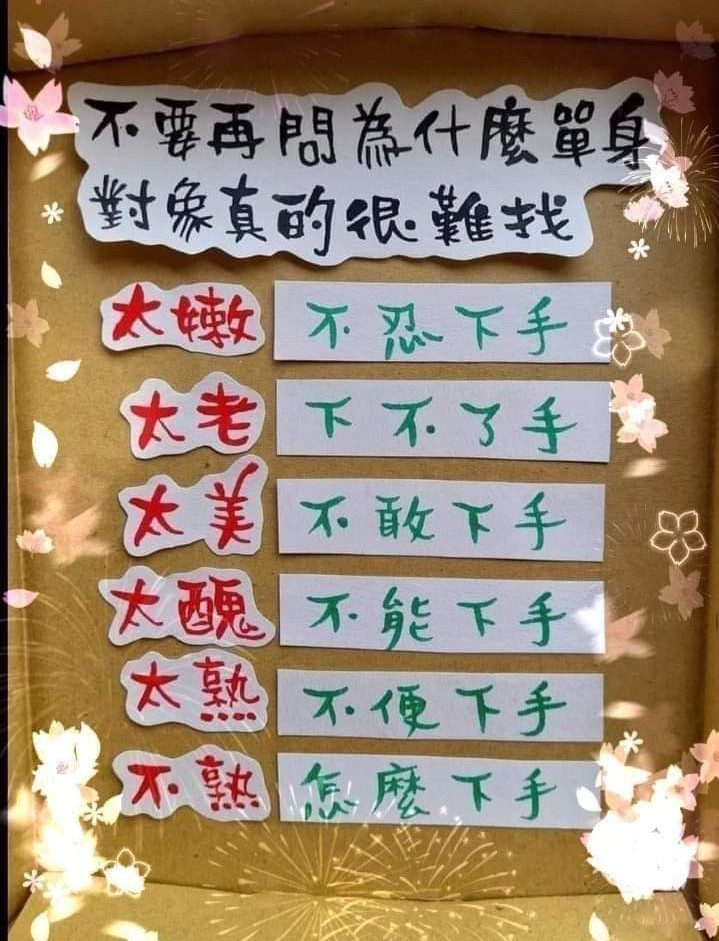 不要再問為什麼單身
對象真的很難找
太嫩 不忍下手
太老 下不了手
太美 不敢下手
太醜 不能下手
太熟 不便下手
不熟 怎麼下手